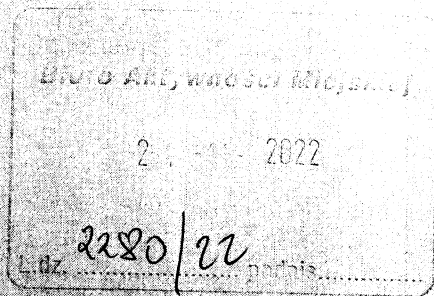 Biuro Aktywności Miejskiej
2 2022
L.dz. 2280/22 podpis